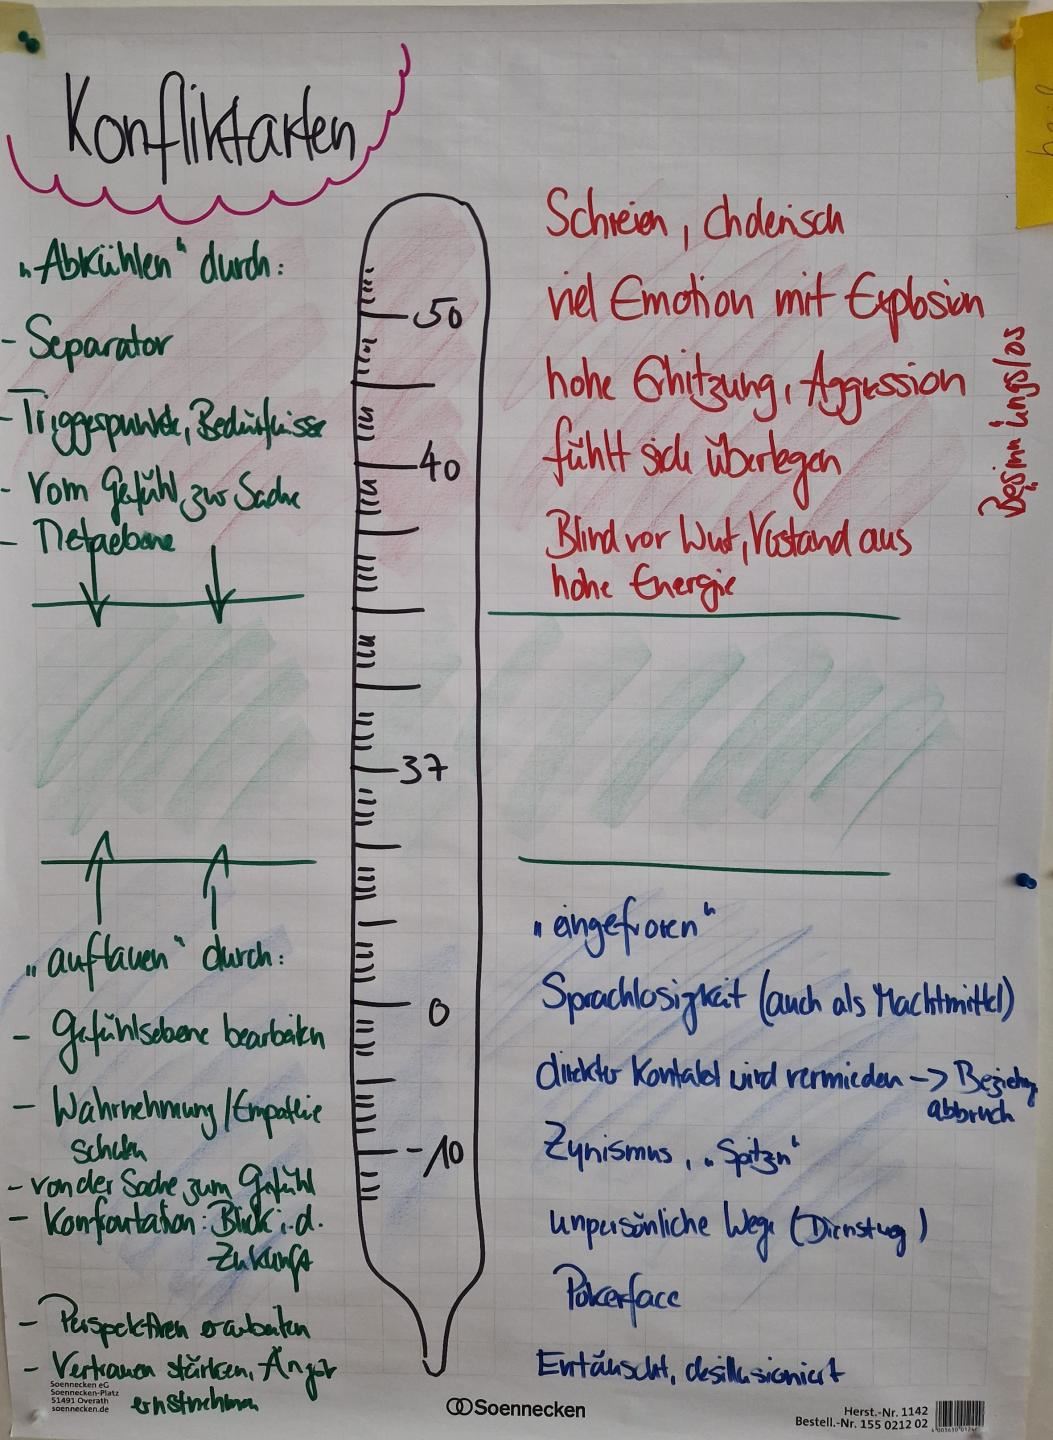 Konfliktarten
„Abkühlen“ durch:
- Separator
- Triggerpunkte, Bedürfnisse
- Vom Gefühl zur Sache
- Metaebene
50
40
37
0
-10
Schreien, cholerisch
viel Emotion mit Explosion
hohe Erhitzung, Aggression
fühlt sich überlegen
Blind vor Wut, Verstand aus
hohe Energie
Besinnungslos
„auftauen“ durch:
- Gefühlsebene bearbeiten
- Wahrnehmung/Empathie
schulen
- von der Sache zum Gefühl
- Konfrontation: Blick i.d.
Zukunft
- Perspektiven erarbeiten
- Vertrauen stärken, Angst
ernstnehmen
„eingefroren“
Sprachlosigkeit (auch als Machtmittel)
direkter Kontakt wird vermieden -> Beziehungs
abbruch
Zynismus, „Spitzen“
unpersönliche Wege (Dienstweg)
Pokerface
Enttäuscht, desillusioniert
Soennecken eG
Soennecken-Platz
51491 Overath
soennecken.de
Soennecken
Herst.-Nr. 1142
Bestell.-Nr. 155 0212 02